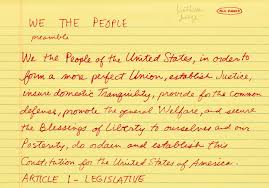 WE THE PEOPLE
preamble
We the People of the United States, in order to
form a more perfect Union, establish Justice,
insure domestic Tranquility, provide for the common
defense, promote the general Welfare, and secure
the Blessings of Liberty to ourselves and our
Posterity, do ordain and establish this
Constitution for the United States of America.
ARTICLE 1 - LEGISLATIVE